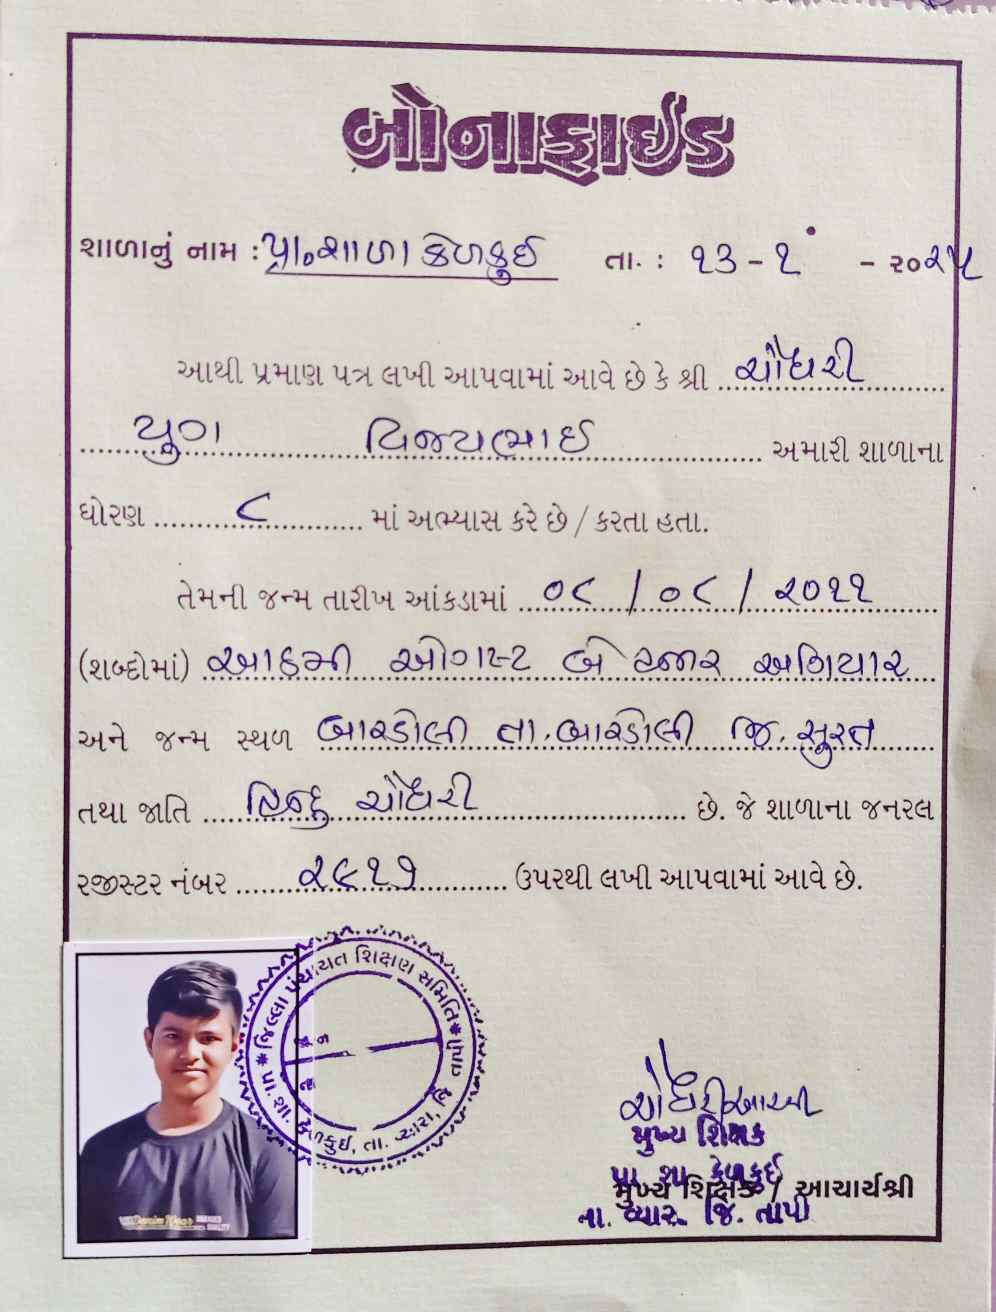 બોનાફાઈડ
શાળાનું નામ : પ્રા૦શાળા કેળકુઈ તા. : ૧૩ - ૧ - ૨૦૨૫
આથી પ્રમાણ પત્ર લખી આપવામાં આવે છે કે શ્રી ચૌધરી
યુગ વિજયભાઈ અમારી શાળાના
ધોરણ ૮ માં અભ્યાસ કરે છે / કરતા હતા.
તેમની જન્મ તારીખ આંકડામાં ૦૮ / ૦૮ / ૨૦૧૧
(શબ્દોમાં) આઠમી ઓગષ્ટ બે હજાર અગિયાર
અને જન્મ સ્થળ બારડોલી તા. બારડોલી જિ. સુરત
તથા જાતિ હિન્દુ ચૌધરી છે. જે શાળાના જનરલ
રજીસ્ટર નંબર ૨૯૧૭ ઉપરથી લખી આપવામાં આવે છે.
જિલ્લા પંચાયત શિક્ષણ સમિતિ * તાપી
પ્રા. શા. કેળકુઈ, તા. વ્યારા, જિ
ચૌધરી
મુખ્ય શિક્ષક
પ્રા. શા. કેળકુઈ
મુખ્ય શિક્ષક / આચાર્યશ્રી
તા. વ્યારા. જિ. તાપી